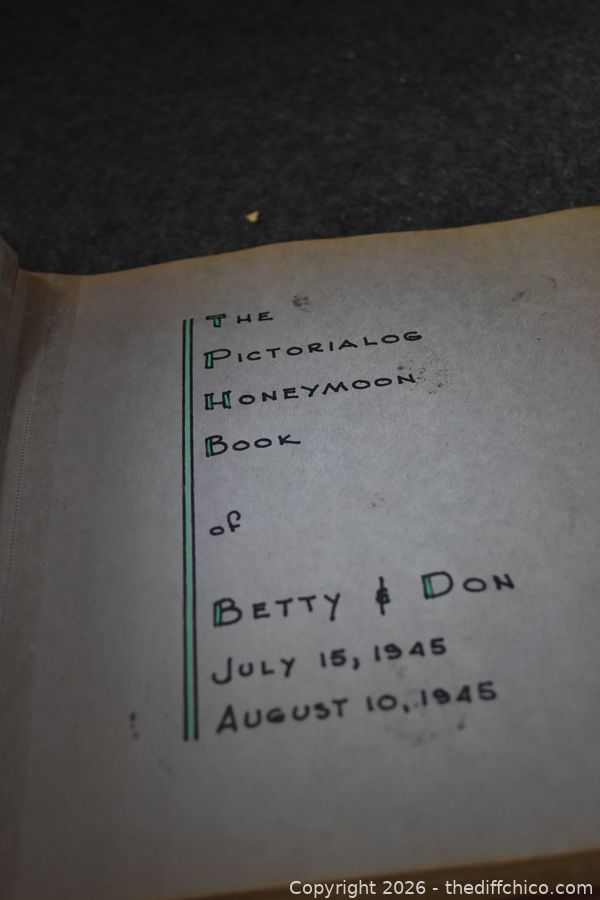 THE
PICTORIALOG
HONEYMOON
BOOK
of
BETTY & DON
JULY 15, 1945
AUGUST 10, 1945
Copyright 2026 - thediffchico.com